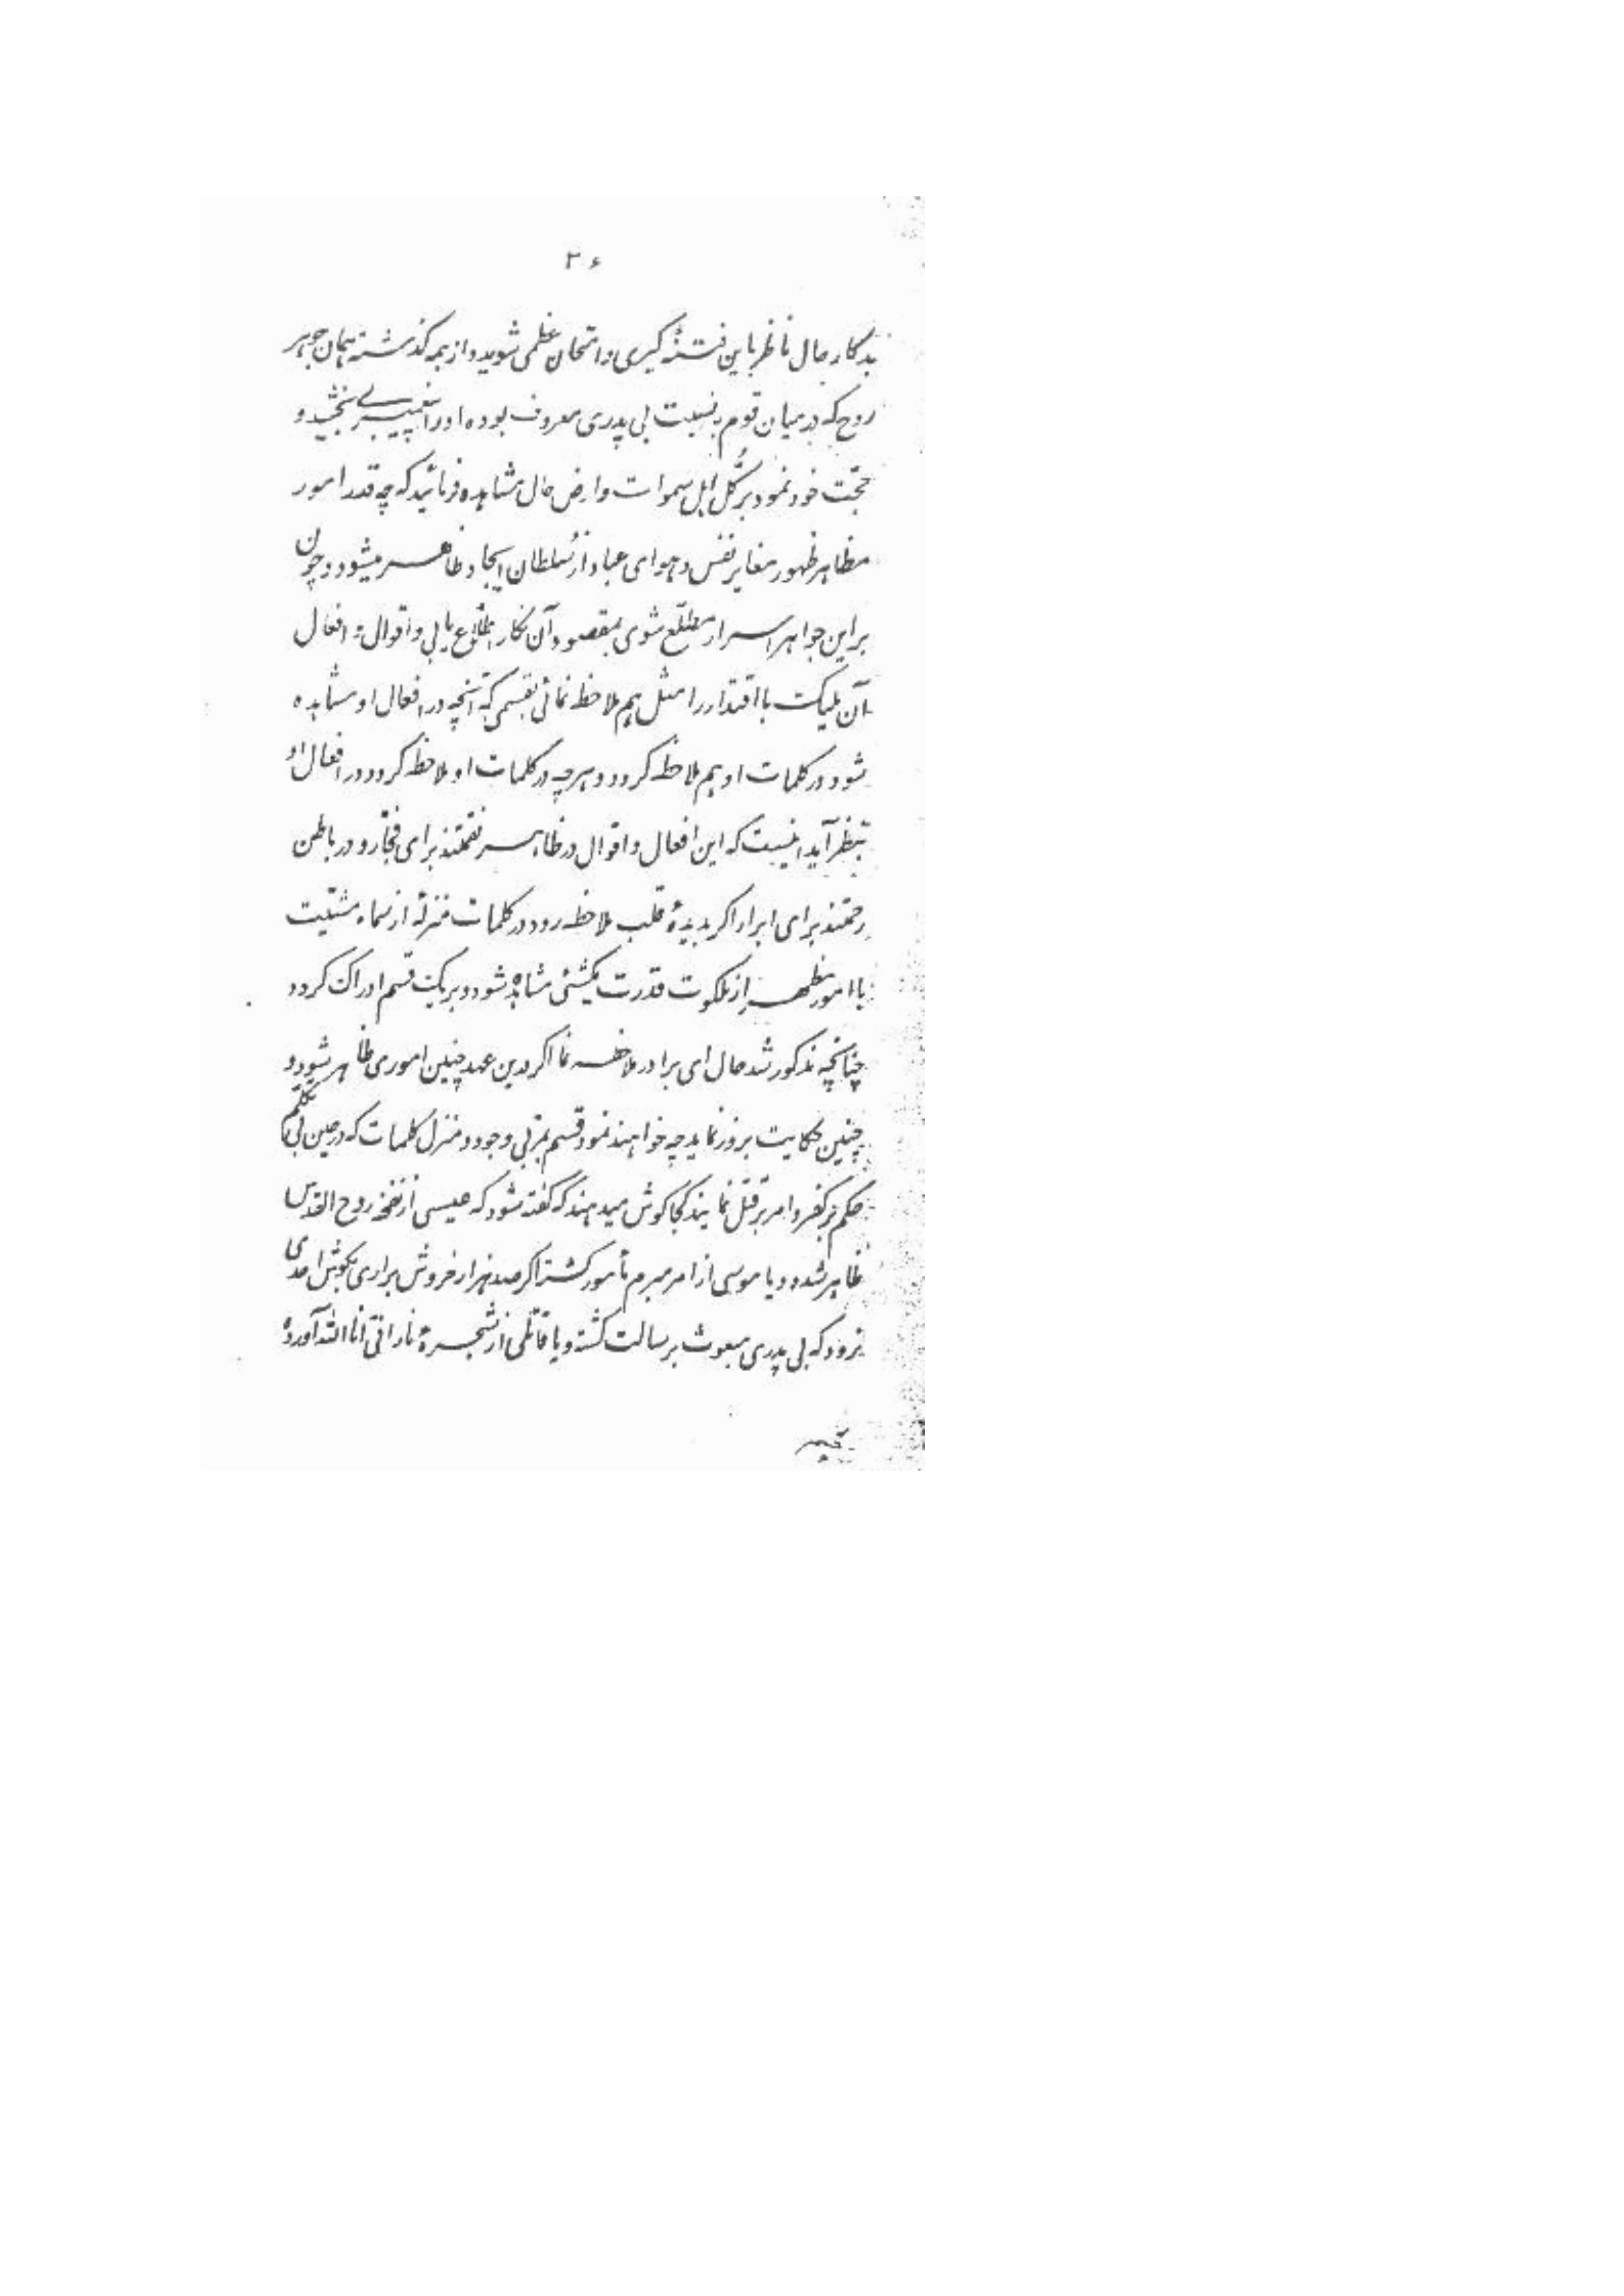 ۳۶
بدکار حال ناظر باین فتنهٔ کبری و امتحان عظمی شوید و از همه گذشته همان جوهر
روح که در میان قوم بنسبت بی پدری معروف بوده او را پیغمبری بخشید و
حجّت خود نمود بر کُلّ اهل سموات و ارض حال مشاهده فرمائید که چه قدر امور
مظاهر ظهور مغایر نفس و هوای عباد از سُلطان ایجاد ظاهر میشود و چون
بر این جواهر اسرار مطّلع شوی بمقصود آن نگار اطّلاع یابی و اقوال و افعال
آن ملیک با اقتدار را مثل هم ملاحظه نمائی بقسمی که آنچه در افعال او مشاهده
شود در کلمات او هم ملاحظه گردد و هرچه در کلمات او ملاحظه گردد در افعال او
بنظر آید اینست که این افعال و اقوال در ظاهر نقمتند برای فجّار و در باطن
رحمتند برای ابرار اگر بدیدهٔ قلب ملاحظه رود در کلمات منزله از سماء مشیّت
با امور مظهره از ملکوت قدرت یکشئی مشاهده شود و بر یک قسم ادراک گردد
چنانچه مذکور شد حال ای برادر ملاحظه نما اگر درین عهد چنین اموری ظاهر شود و
چنین حکایت بروز نماید چه خواهند نمود قسم بمربّی وجود و منزل کلمات که در حین بی تکلّم
حکم بر کفر و امر بر قتل نمایند کجا گوش میدهند که گفته شود که عیسی از نفخهٔ روح القدس
ظاهر شده و یا موسی از امر مبرم مأمور گشته اگر صد هزار خروش براری بگوش احدی
نرود که بی پدری مبعوث برسالت گشته و یا قاتلی از شجرهٔ نار انّی انا اللّه آورده